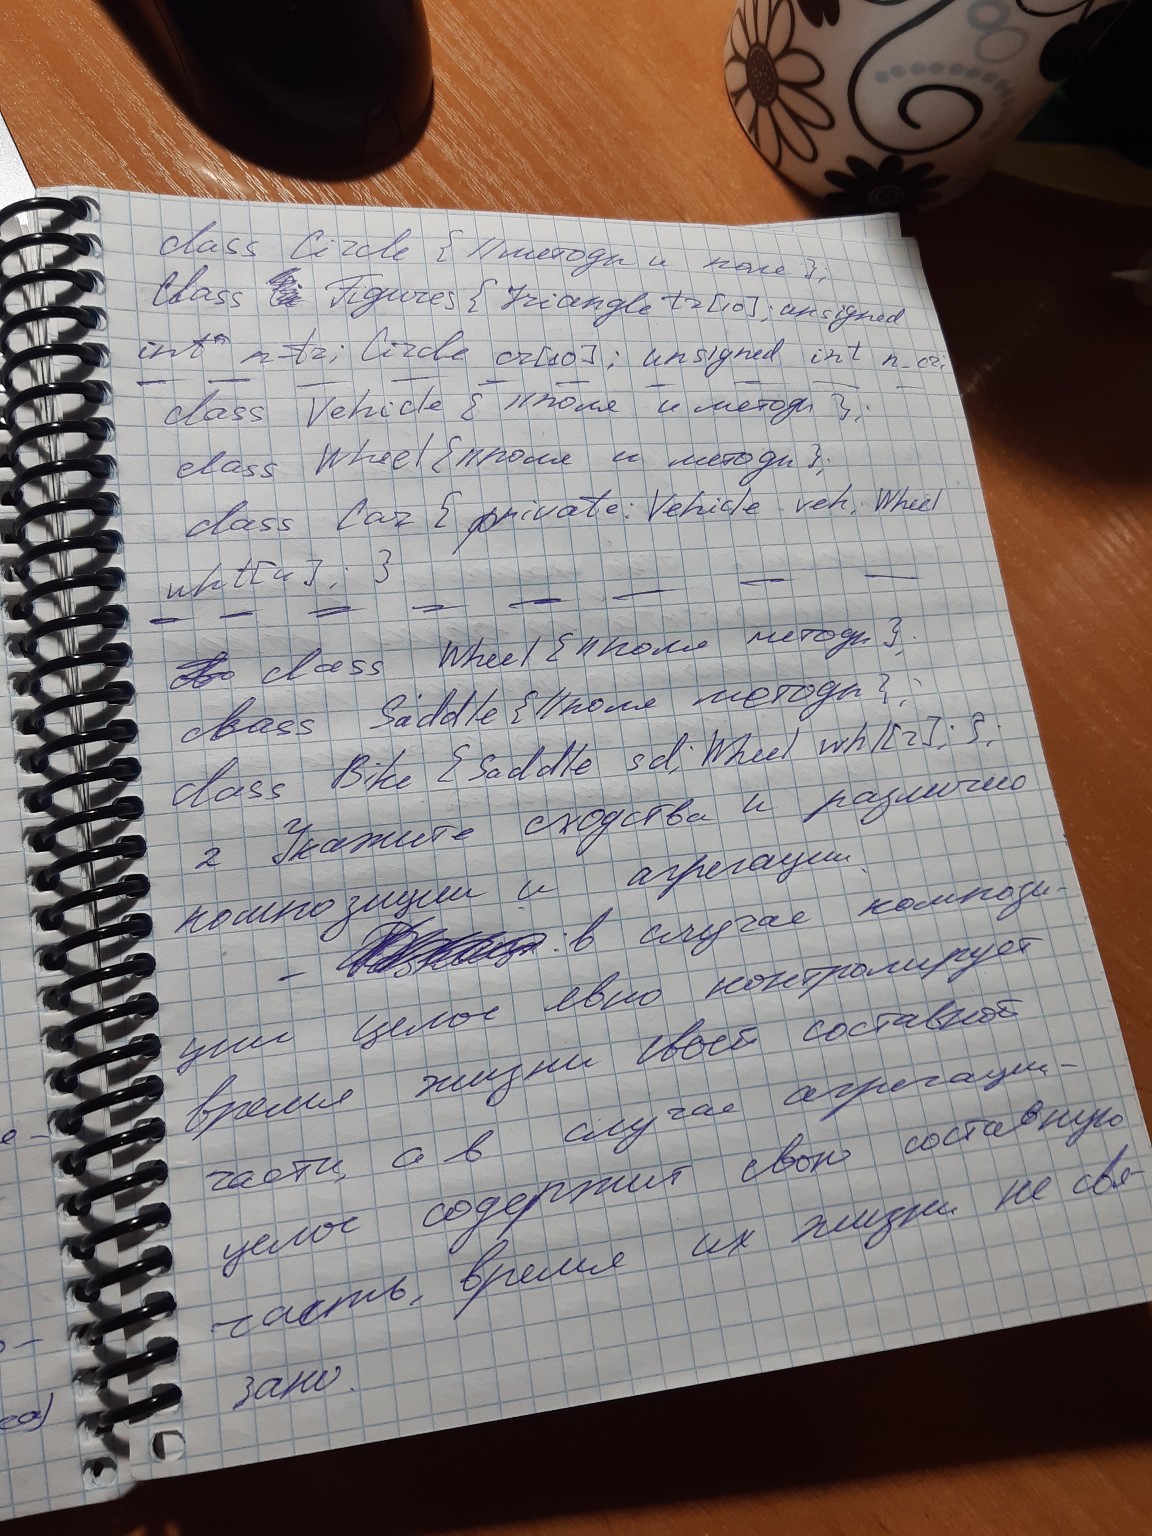 class Circle { //методы и поле };
class Figures { Triangle tr[10]; unsigned
int n-tr; Circle cr[10]; unsigned int n_cr;
class Vehicle { //поля и методы };
class Wheel { //поля и методы };
class Car { private: Vehicle veh; Wheel
whl[4]; }
class Wheel { //поля методы };
class Saddle { //поля методы };
class Bike { Saddle sd; Wheel whl[2]; };
2 Укажите сходства и различию
композиции и агрегации.
- : в случае компози-
ции целое явно контролирует
время жизни своей составной
части, а в случае агрегации-
целое содержит свою составную
часть, время их жизни не свя-
зано.
е-
о-
са)